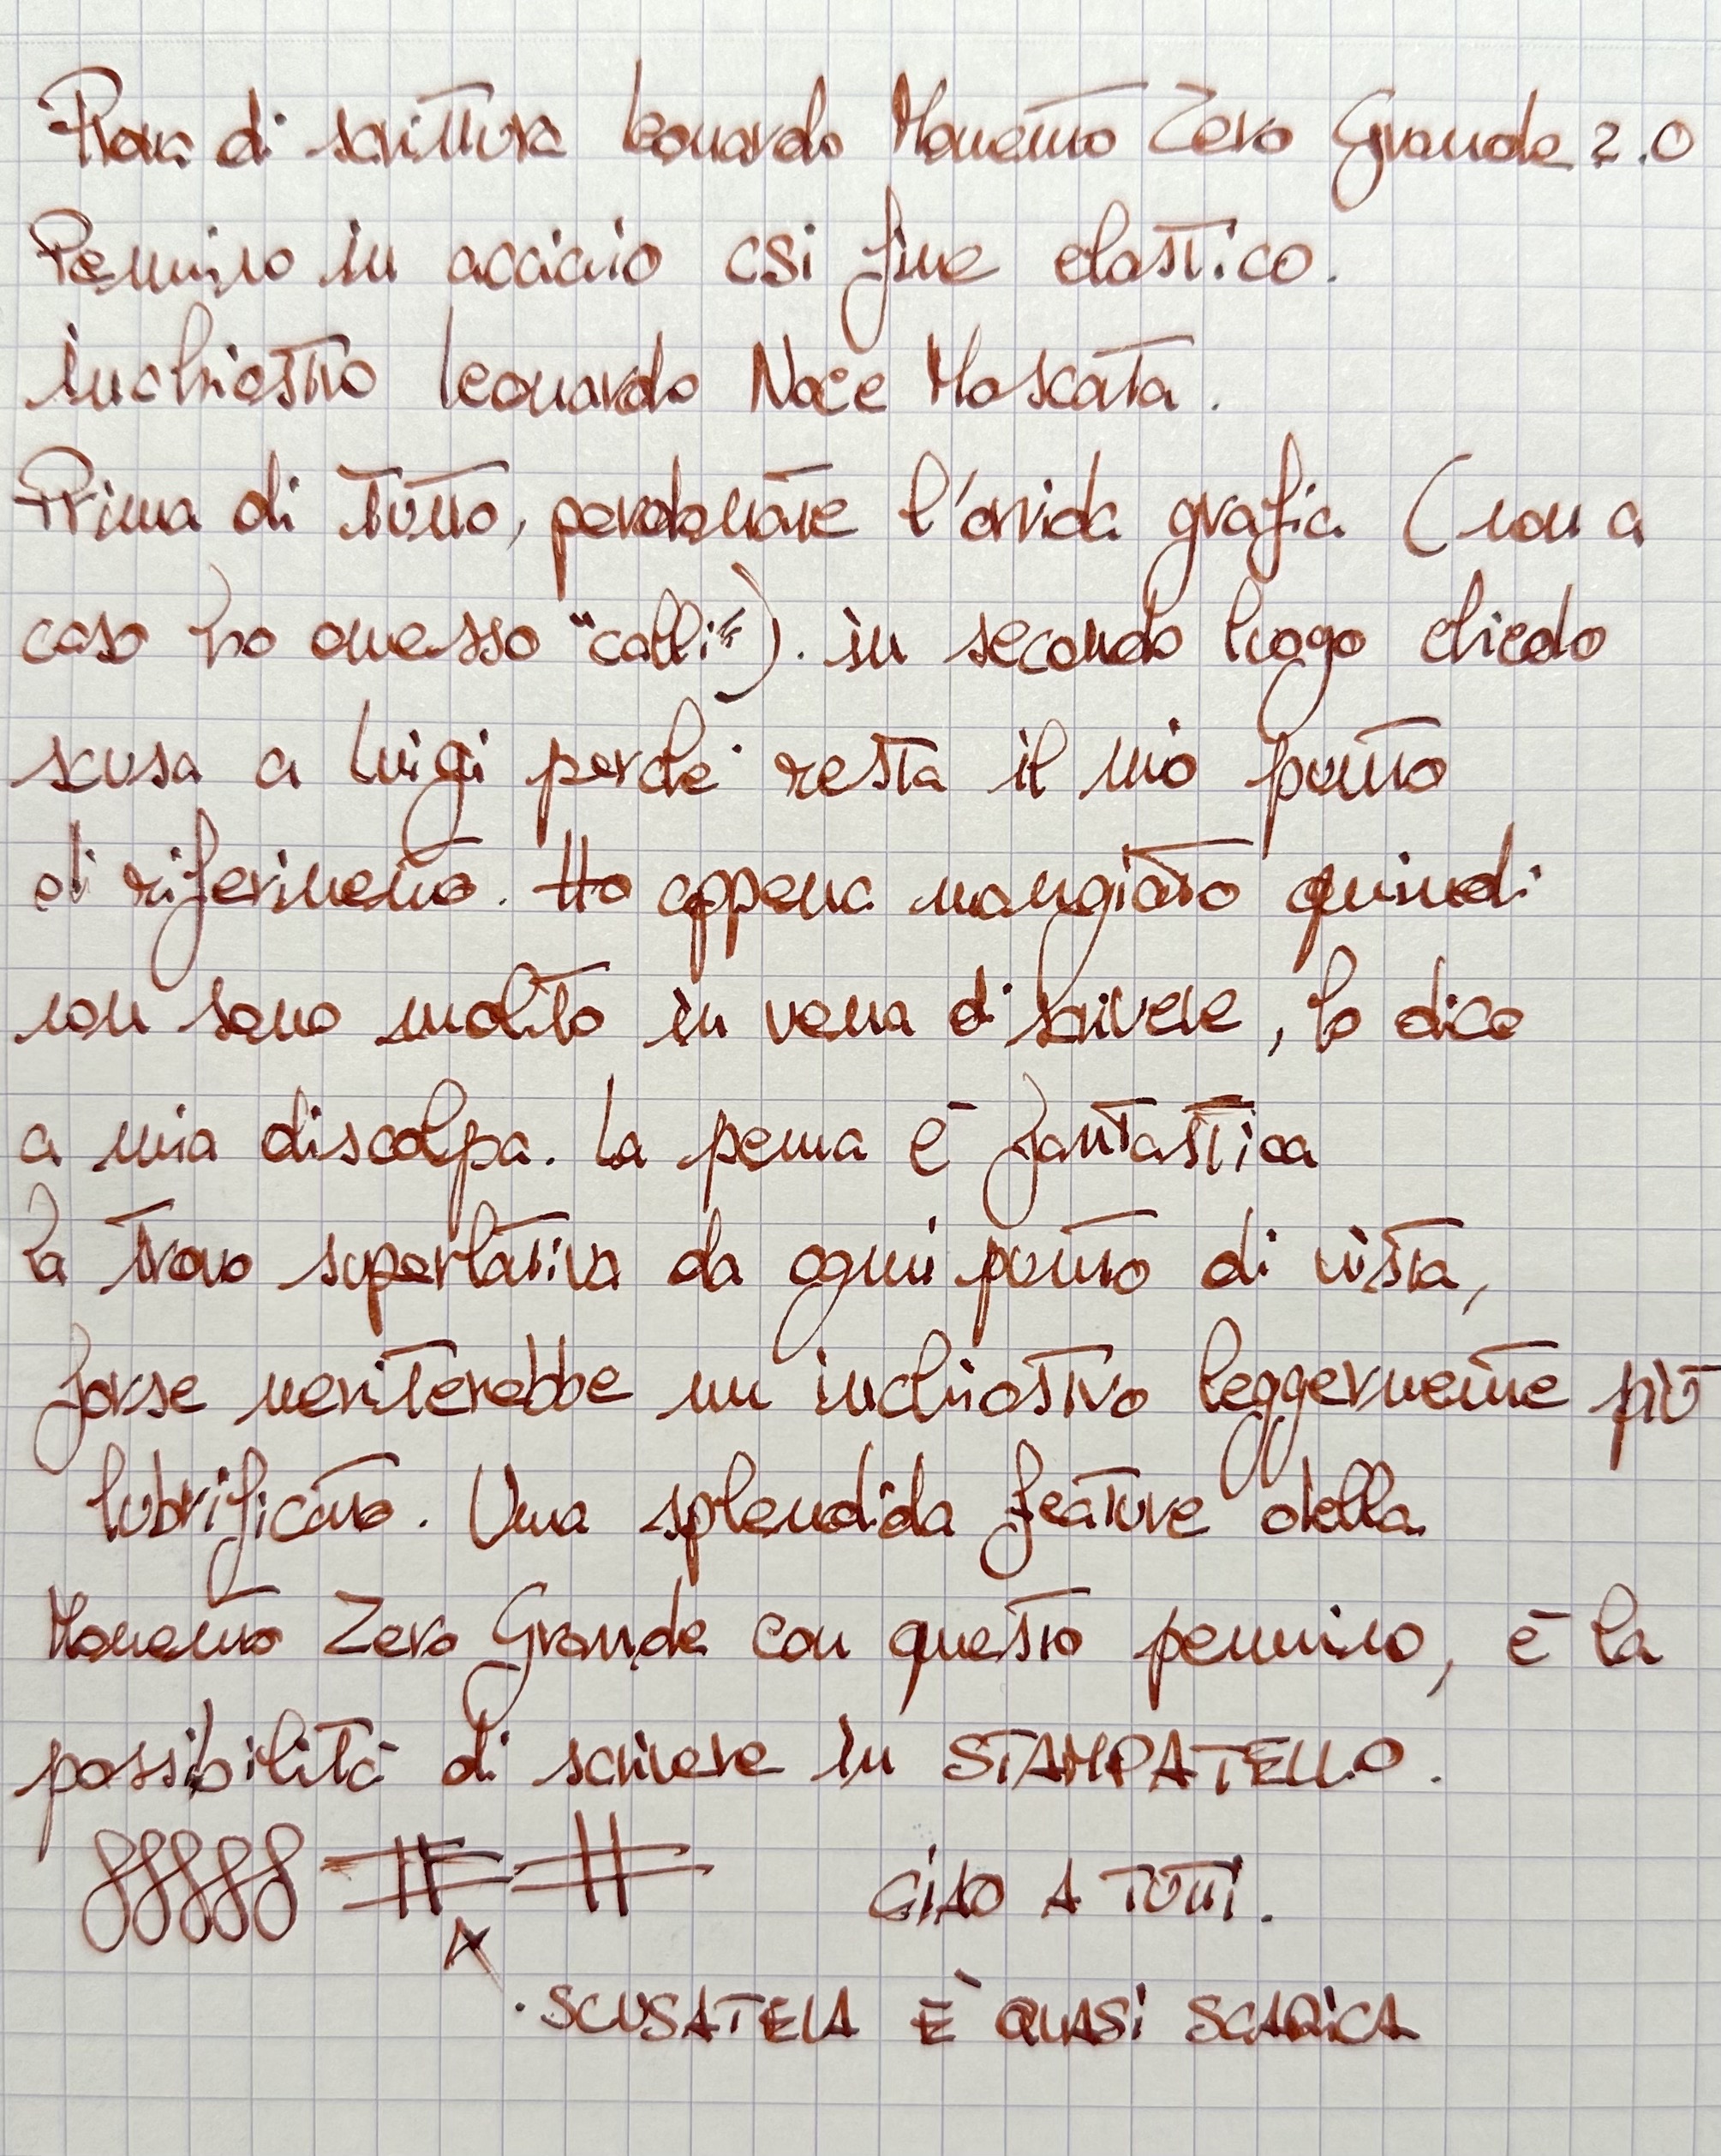 Prova di scrittura Leonardo Momento Zero Grande 2.0
Pennino in acciaio csi fine elastico.
inchiostro Leonardo Noce Moscata.
Prima di tutto, perdonate l'orrida grafia (non a
caso ho omesso "calli"). in secondo luogo chiedo
scusa a Luigi perché resta il mio punto
di riferimento. Ho appena mangiato quindi
non sono molto in vena di scrivere, lo dico
a mia discolpa. La penna è fantastica
la trovo superlativa da ogni punto di vista,
forse meriterebbe un inchiostro leggermente più
lubrificato. Una splendida feature della
Momento Zero Grande con questo pennino, è la
possibilità di scrivere in STAMPATELLO.
CiAO A TUTTi.
SCUSATELA È QUASi SCARiCA